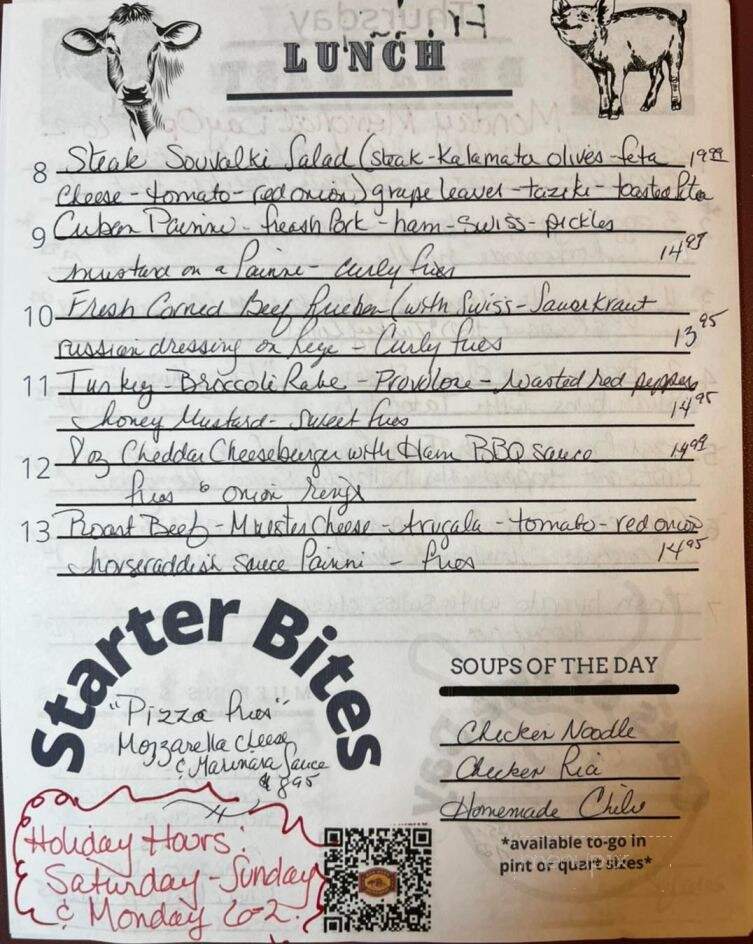 LUNCH
8 Steak Souvalki Salad (steak-Kalamata olives-feta 19.99
cheese-tomato-red onion) grape leaves-taziki-toasted pita
9 Cuban Painini-freash Pork-ham-swiss-pickles
mustard on a Painni-curly fries 14.99
10 Fresh Corned Beef Rueben (with Swiss-Sauerkraut
russian dressing on Reye-Curly fries 13.95
11 Turkey-Broccoli Rabe-Provolone-roasted red peppers
honey Mustard-sweet fries 14.95
12 8oz Cheddar Cheeseburger with Ham BBQ sauce 14.99
fries & onion rings
13 Roast Beef-Muester Cheese-Arugala-tomato-red onion
horseraddish sauce Painni-fries 14.95
Starter Bites
"Pizza fries"
Mozzarella cheese
& Marinara Sauce
$8.95
SOUPS OF THE DAY
Chicken Noodle
Chicken Rice
Homemade Chili
*available to-go in
pint or quart sizes*
Holiday Hours:
Saturday-Sunday
& Monday 6-2